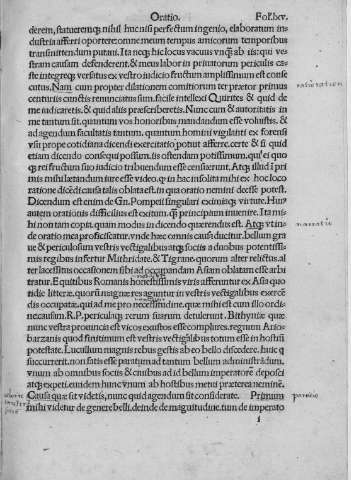 Oratio. Fol.lxv.
derem, statueremq; nihil huc nisi perfectum ingenio, elaboratum in
dustria afferri oportere: omne meum tempus amicorum temporibus
transmittendum putaui. Ita neq; hic locus vacuus vnq̃ ab iis: qui ve
stram causam defenderent. & meus labor in priuatorum periculis ca
ste integreq; versatus ex vestro iudicio fructum amplissimum est conse
cutus. Nam cum propter dilationem comitiorum ter prætor primus
centuriis cunctis renunciatus sum. facile intellexi Quirites & quid de
me iudicaretis. & quid aliis præscriberetis. Nunc cum & autoritatis in
me tantum sit. quantum vos honoribus mandandum esse voluistis. &
ad agendum facultatis tantum. quantum homini vigilanti ex forensi
vsu prope cotidiana dicendi exercitatio potuit afferre. certe & si quid
etiam dicendo consequi possum. iis ostendam potissimum. qui ei quo
q; rei fructum suo iudicio tribuendum esse censuerunt. Atq; illud ĩ pri
mis mihi lætandum iure esse video. q in hac insolita mihi ex hoc loco
ratione dicẽdi causa talis oblata est. in qua oratio nemini deesse potest.
Dicendum est enim de Gn. Pompeii singulari eximiaq; virtute. Huiꝰ
autem orationis difficilius est exitum. q̃ principium inuenire. Ita mi
hi non tam copia. quam modus in dicendo quærendus est. Atq; vt in
de oratio mea proficiscatur. vnde hæc omnis causa ducitur. bellum gra
ue & periculosum vestris vectigalibus atq; sociis a duobus potentissi
mis regibus infertur Mithridate. & Tigrane. quorum alter relictus. al
ter lacessitus occasionem sibi ad occupandam Asiam oblatam esse arbi
tratur. Equitibus Romanis honestissimis viris afferuntur ex Asia quo
tidie litteræ. quorũ magnæ res aguntur in vestris vectigalibus exercẽ
dis occupatæ. qui ad me pro necessitudine. quæ mihi est cum illo ordi:
ne causum. R.P. periculaq; rerum suarum detulerunt. Bithyniæ quæ
nunc vestra prouincia est vicos exustos esse complures. regnum Ario
barzanis quod finitimum est vestris vectigalibus totum esse in hostiũ
potestate. Lucullum magnis rebus gestis ab eo bello discedere. huic q
successerit. non satis esse paratum ad tantum bellum administrãdum.
vnum ab omnibus sociis & ciuibus ad id bellum imperatorẽ deposci
atq; expeti. euidem hunc vnum ab hostibus metui præterea neminẽ.
Causa quæ sit videtis. nunc quid agendum sit considerate. Primum
mihi videtur de genere belli. deinde de magnitudine. tum de imperato
i
narratio